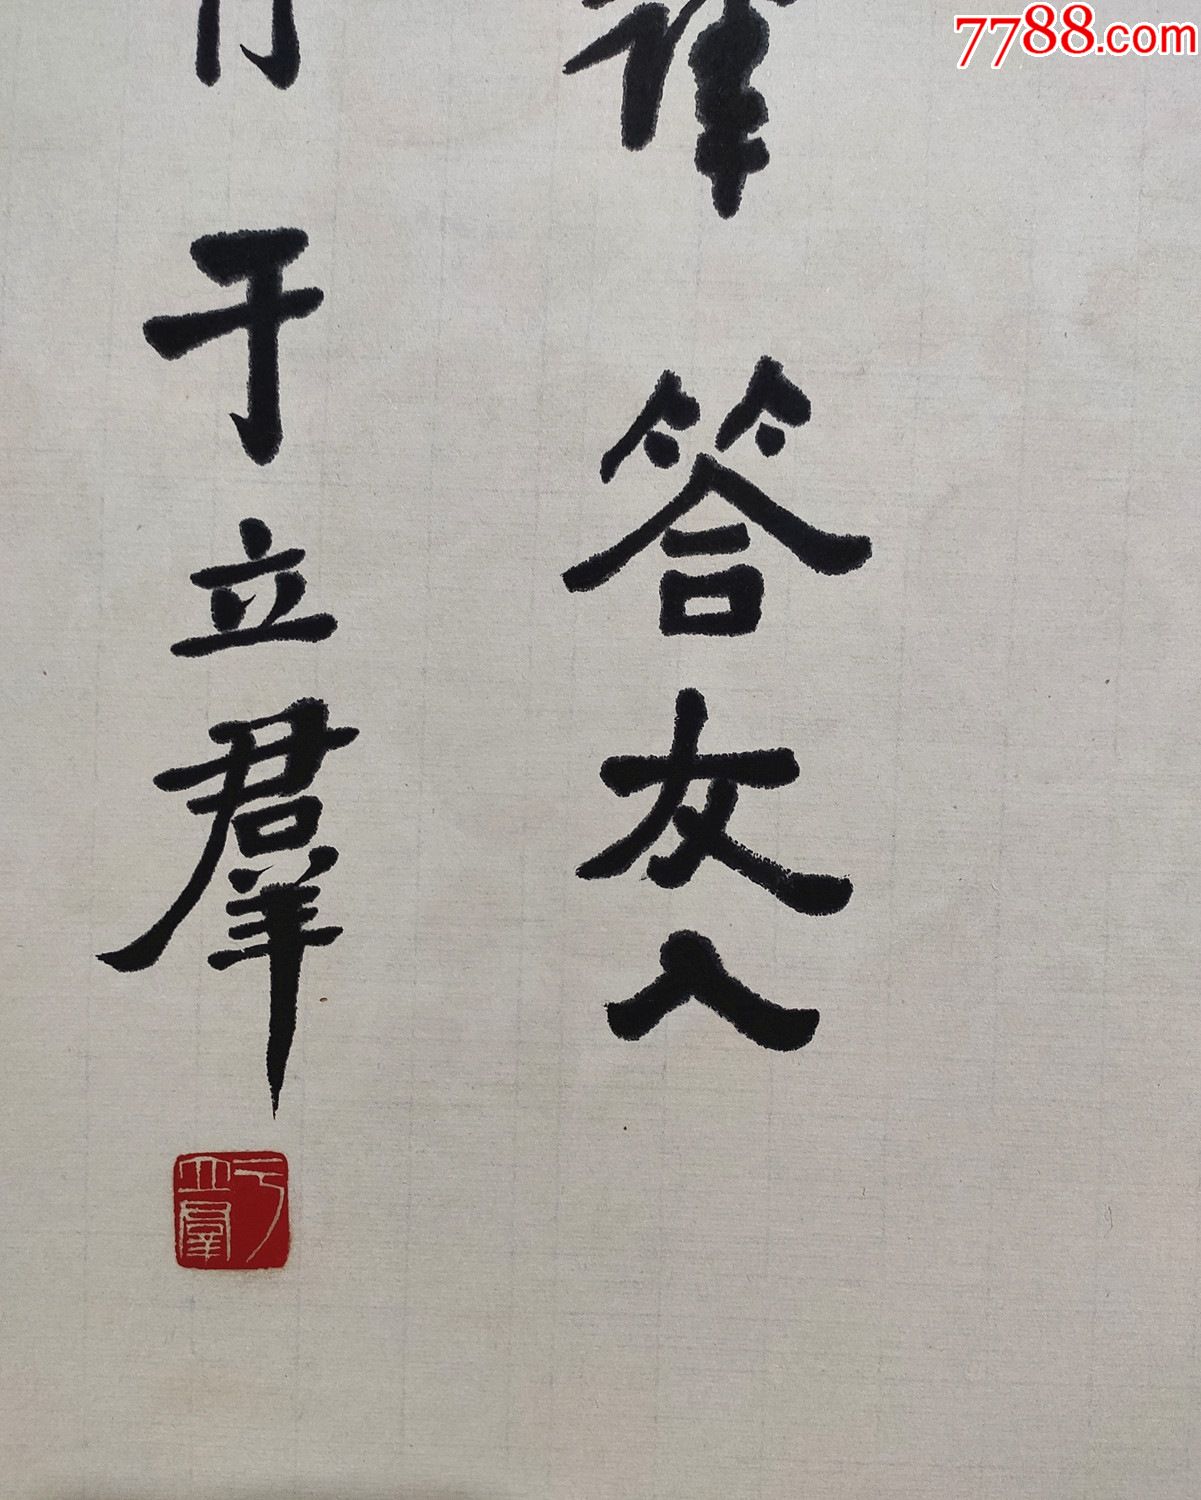 7788.com
答友人
于立羣
于立羣